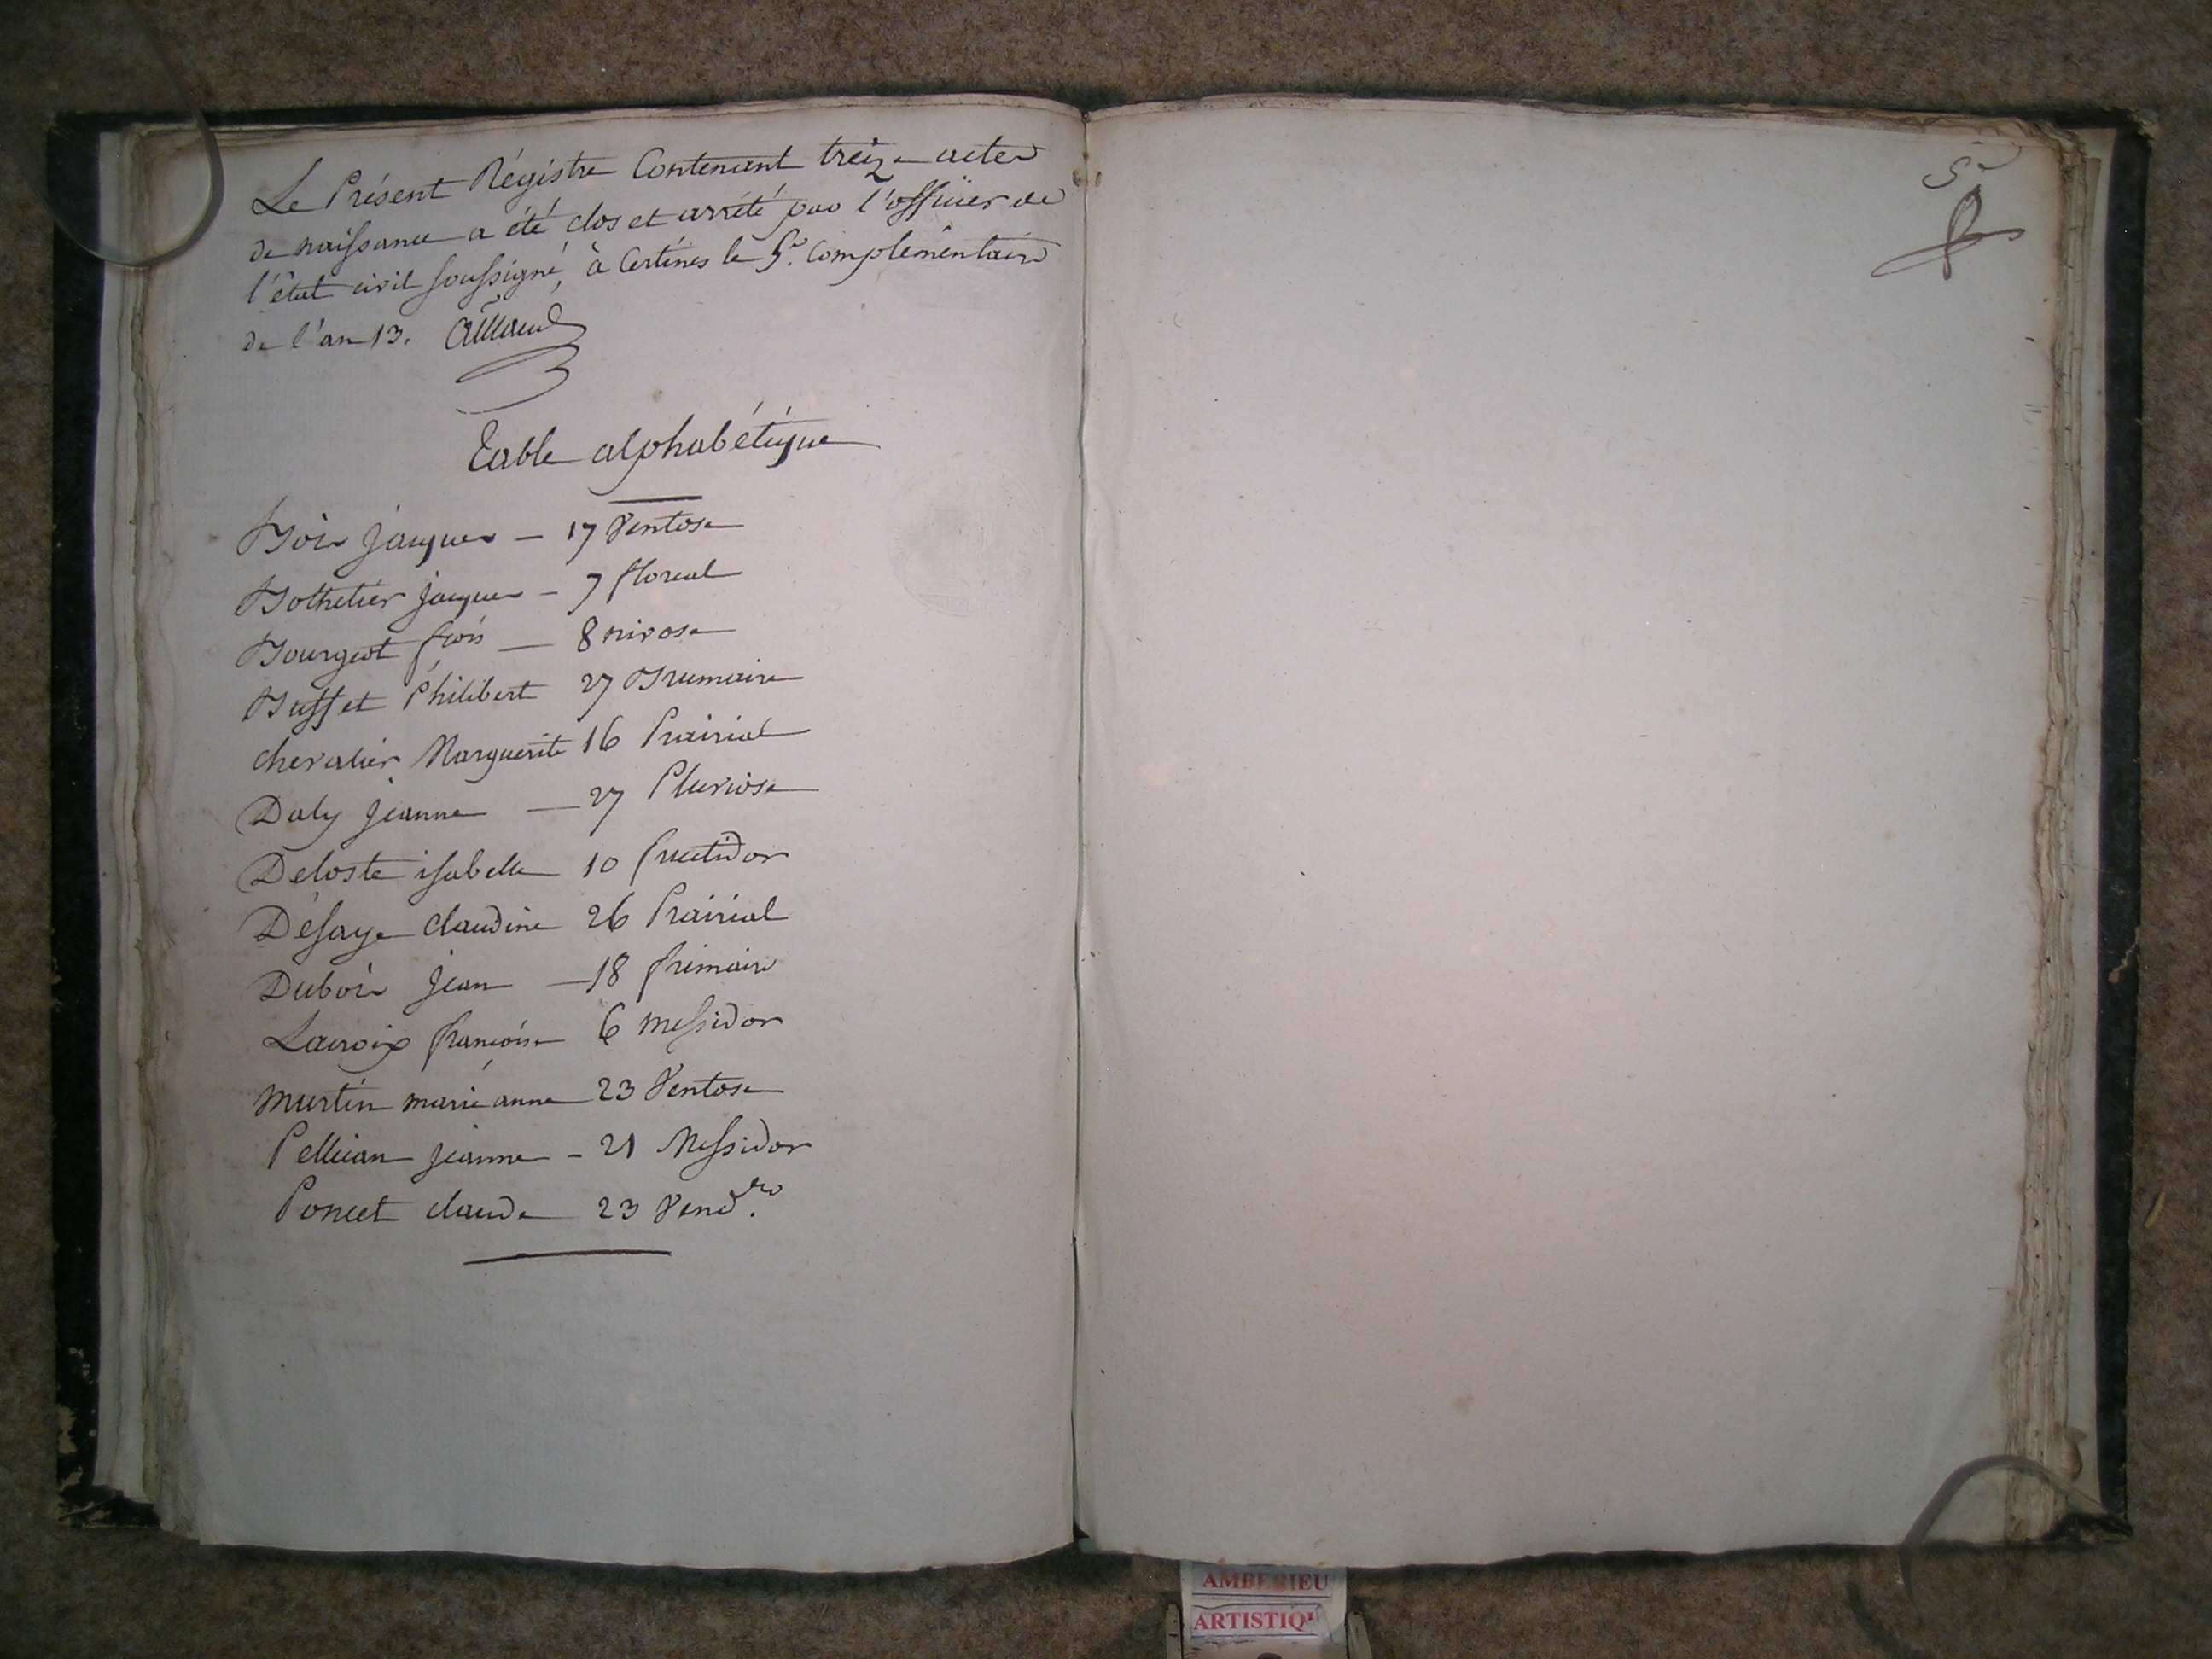 Le Présent Régistre Contenant treize actes
de naissance a été clos et arrêté par l'officier de
l'état civil soussigné, à Certines le 5.e Complémentaire
de l'an 13.
Table alphabétique
Bois jacques — 17 Ventose
Bothelier jacques — 7 floreal
Bourgeot frois — 8 nivose
Buffet Philibert 27 Brumaire
Chevalier Marguerite 16 Prairial
Daly jeanne — 27 Pluviose
Deloste isabelle 10 fructidor
Désaye Claudine 26 Prairial
Dubois jean — 18 frimaire
Lacroix françoise 6 messidor
Martin marie anne 23 Ventose
Pellican jeanne — 21 Messidor
Poncet claude 23 Vend.re
5e
AMBERIEU
ARTISTIQ